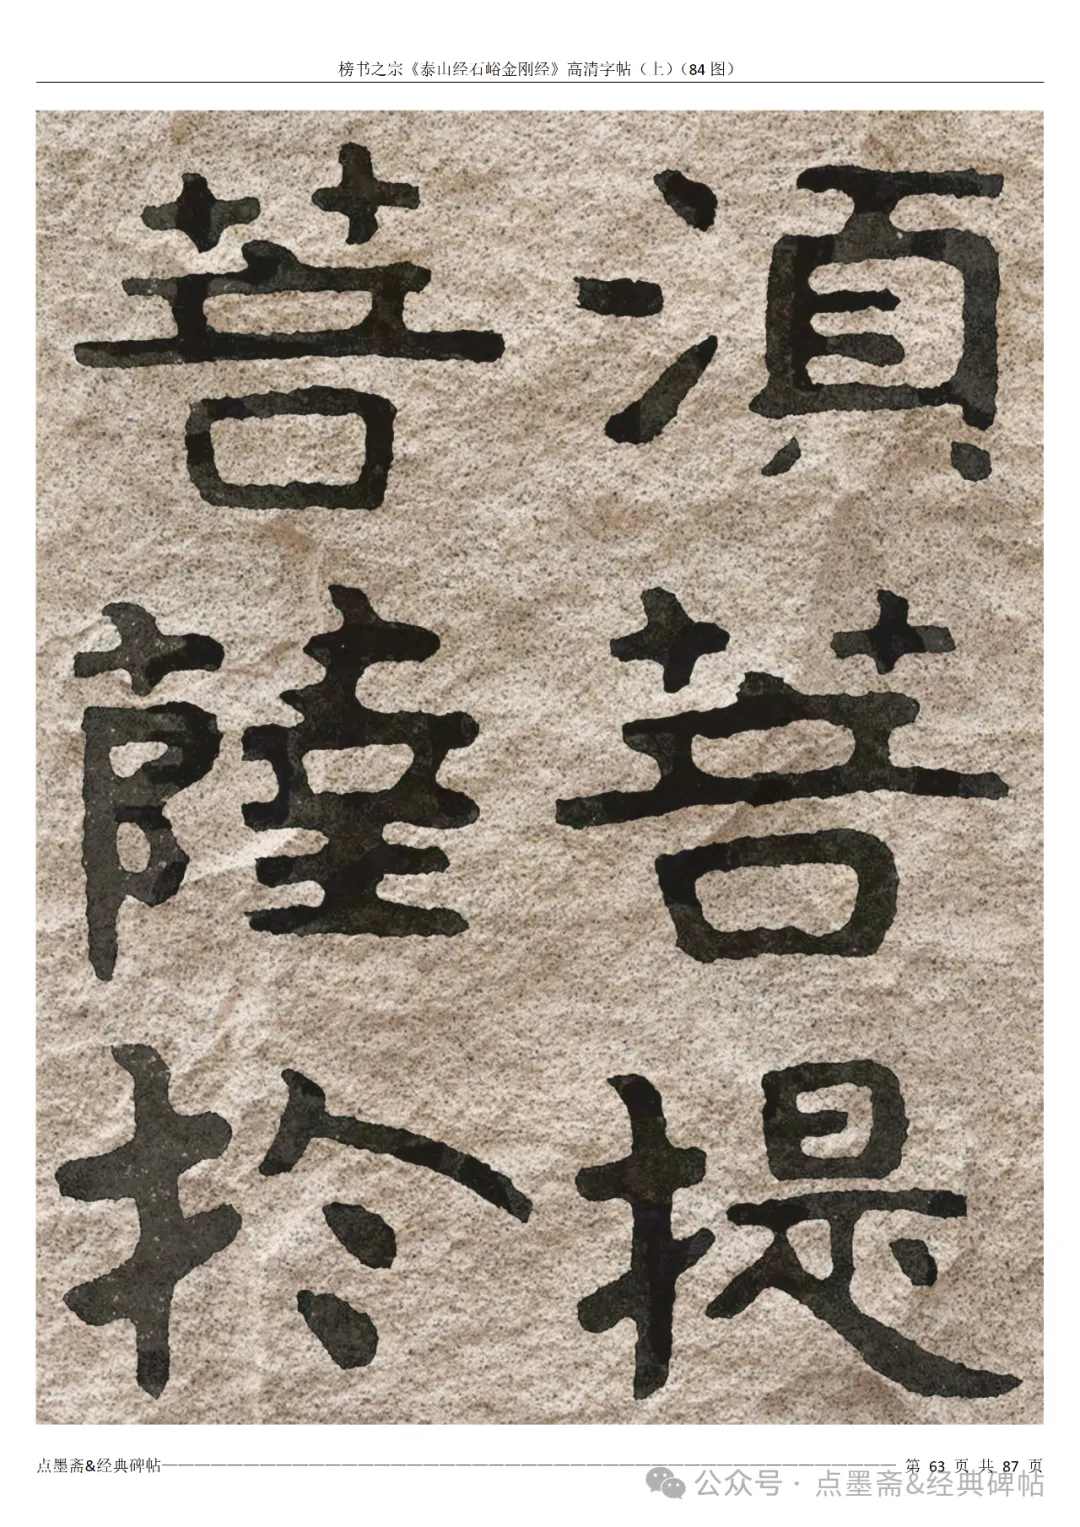 榜书之宗《泰山经石峪金刚经》高清字帖（上）（84 图）
湏菩提
菩薩於
点墨斋&经典碑帖——————————————————第 63 页 共 87 页
公众号 · 点墨斋&经典碑帖